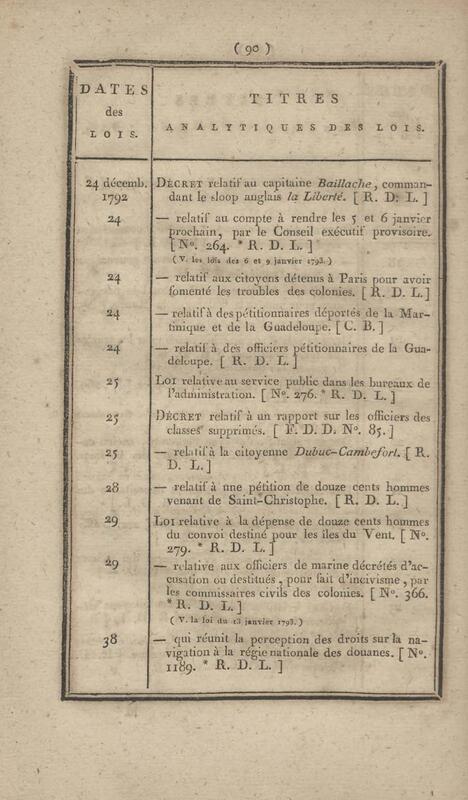 ( 90 )
DATES
des
LOIS.
TITRES
ANALYTIQUES DES LOIS.
24 décemb.
1792
DÉCRET relatif au capitaine Baillache, comman-
dant le sloop anglais la Liberté. [ R. D. L. ]
24
— relatif au compte à rendre les 5 et 6 janvier
prochain, par le Conseil exécutif provisoire.
[ N°. 264. * R. D. L. ]
( V. les lois des 6 et 9 janvier 1793. )
24
— relatif aux citoyens détenus à Paris pour avoir
fomenté les troubles des colonies. [ R. D. L.]
24
— relatif à des pétitionnaires déportés de la Mar-
tinique et de la Guadeloupe. [ C. B. ]
24
— relatif à des officiers pétitionnaires de la Gua-
deloupe. [ R. D. L. ]
25
LOI relative au service public dans les bureaux de
l'administration. [ N°. 276. * R. D. L. ]
25
DÉCRET relatif à un rapport sur les officiers des
classes supprimés. [ F. D. D. N°. 85. ]
25
— relatif à la citoyenne Dubuc-Cambefort. [ R.
D. L. ]
28
— relatif à une pétition de douze cents hommes
venant de Saint-Christophe. [ R. D. L. ]
29
LOI relative à la dépense de douze cents hommes
du convoi destiné pour les îles du Vent. [ N°.
279. * R. D. L. ]
29
— relative aux officiers de marine décrétés d'ac-
cusation ou destitués, pour fait d'incivisme, par
les commissaires civils des colonies. [ N°. 366.
* R. D. L. ]
( V. la loi du 13 janvier 1793. )
38
— qui réunit la perception des droits sur la na-
vigation à la régie nationale des douanes. [ N°.
1189. * R. D. L. ]